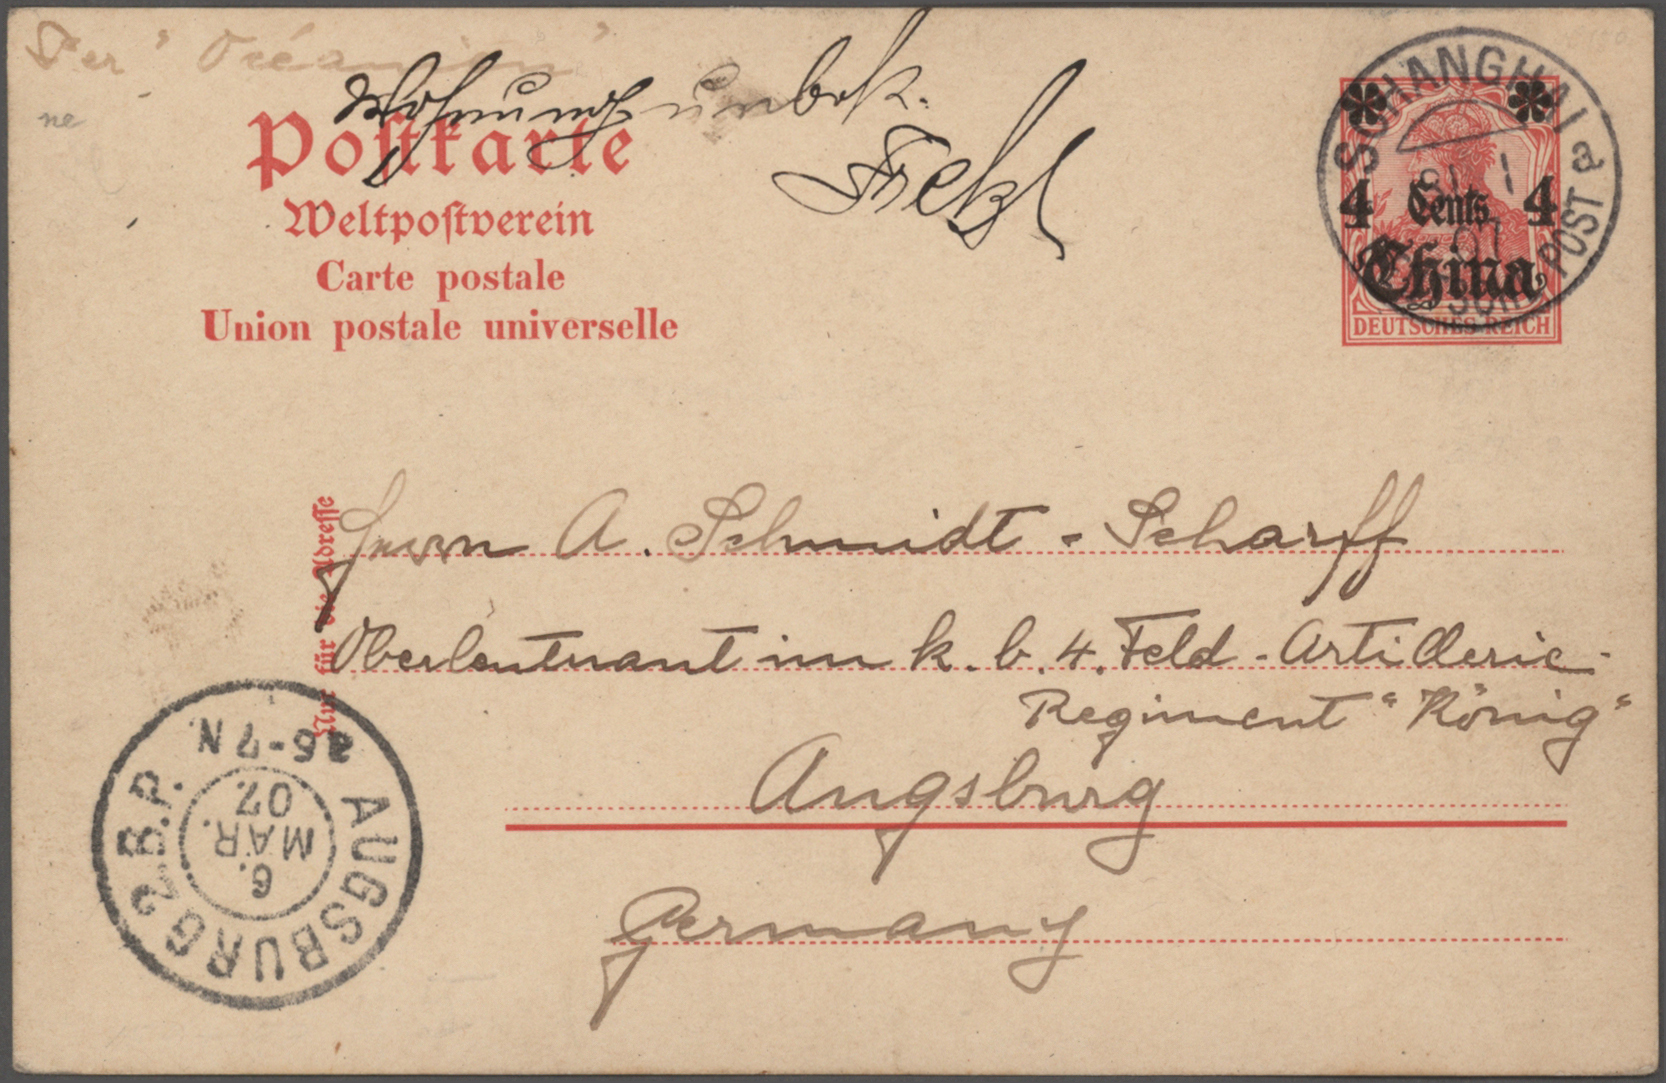 Per "Océanien"
ne
Wohnung unbek.
Postkarte
Weltpostverein
Carte postale
Union postale universelle
SCHANGHAI a
31 1
07
DEUTSCHE POST
4 Cents 4
China
DEUTSCHES REICH
Nur für die Adresse
Herrn A. Schmidt-Scharff
Oberleutnant im k. b. 4. Feld-Artillerie-
Regiment "König"
Augsburg
Germany
AUGSBURG 2 B.P.
6.
MAR.
07
6-7 N.